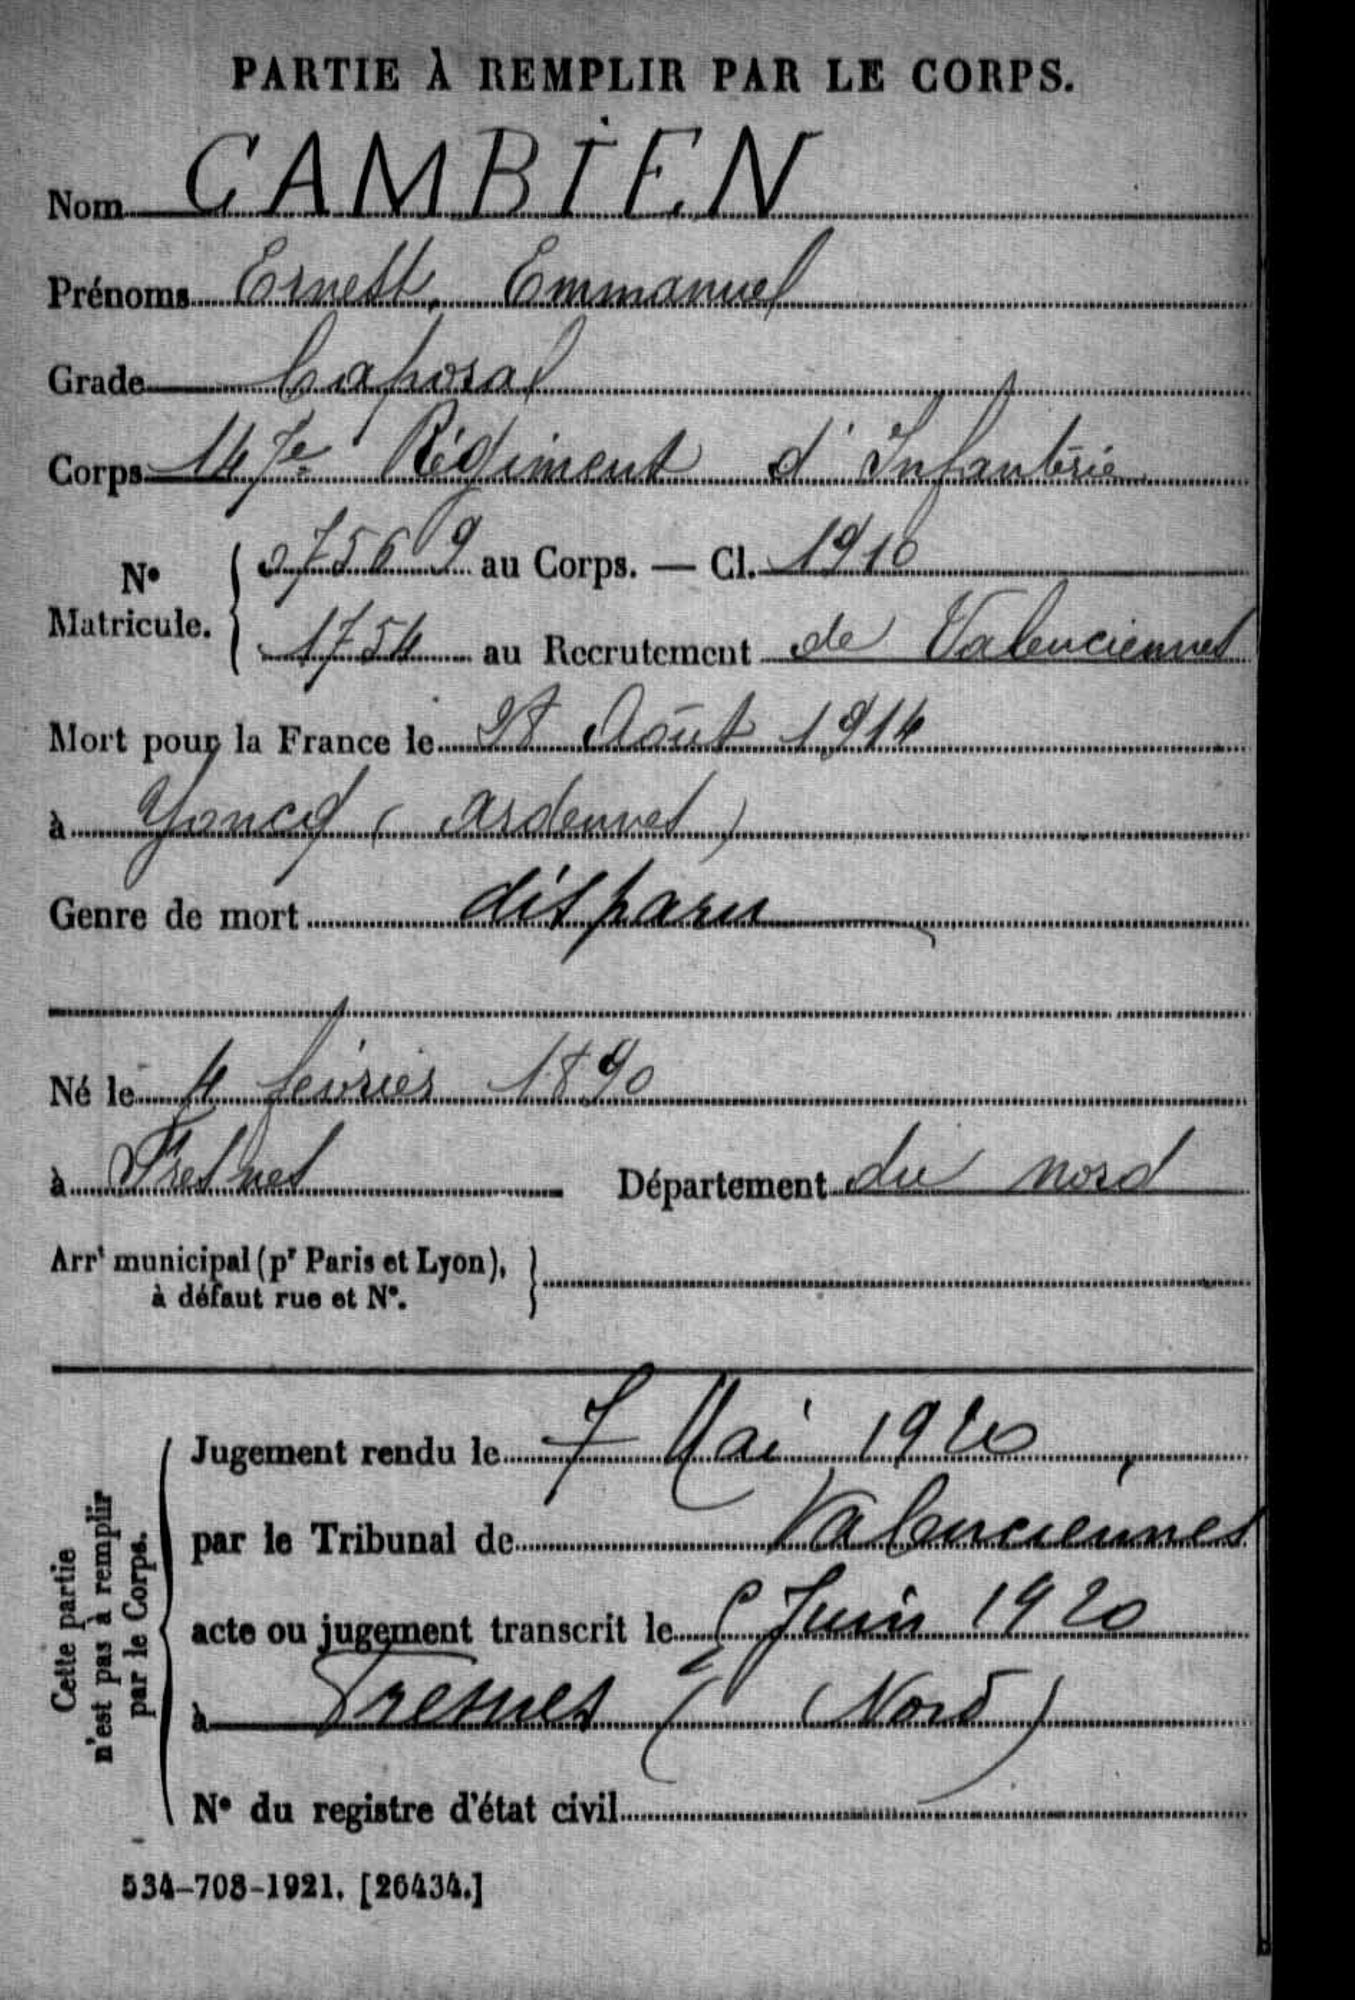 PARTIE À REMPLIR PAR LE CORPS.
Nom CAMBIEN
Prénoms Ernest, Emmanuel
Grade Caporal
Corps 147e Régiment d'Infanterie
N° Matricule. { 07569 au Corps. — Cl. 1910
1754 au Recrutement de Valenciennes
Mort pour la France le 28 Août 1914
à Yoncq (Ardennes)
Genre de mort disparu
Né le 4 février 1890
à Fresnes Département du nord
Arrt municipal (pr Paris et Lyon), à défaut rue et N°. }
Cette partie n'est pas à remplir par le Corps.
Jugement rendu le 7 Mai 1920
par le Tribunal de Valenciennes
acte ou jugement transcrit le Juin 1920
à Fresnes (Nord)
N° du registre d'état civil
534-708-1921. [26434.]